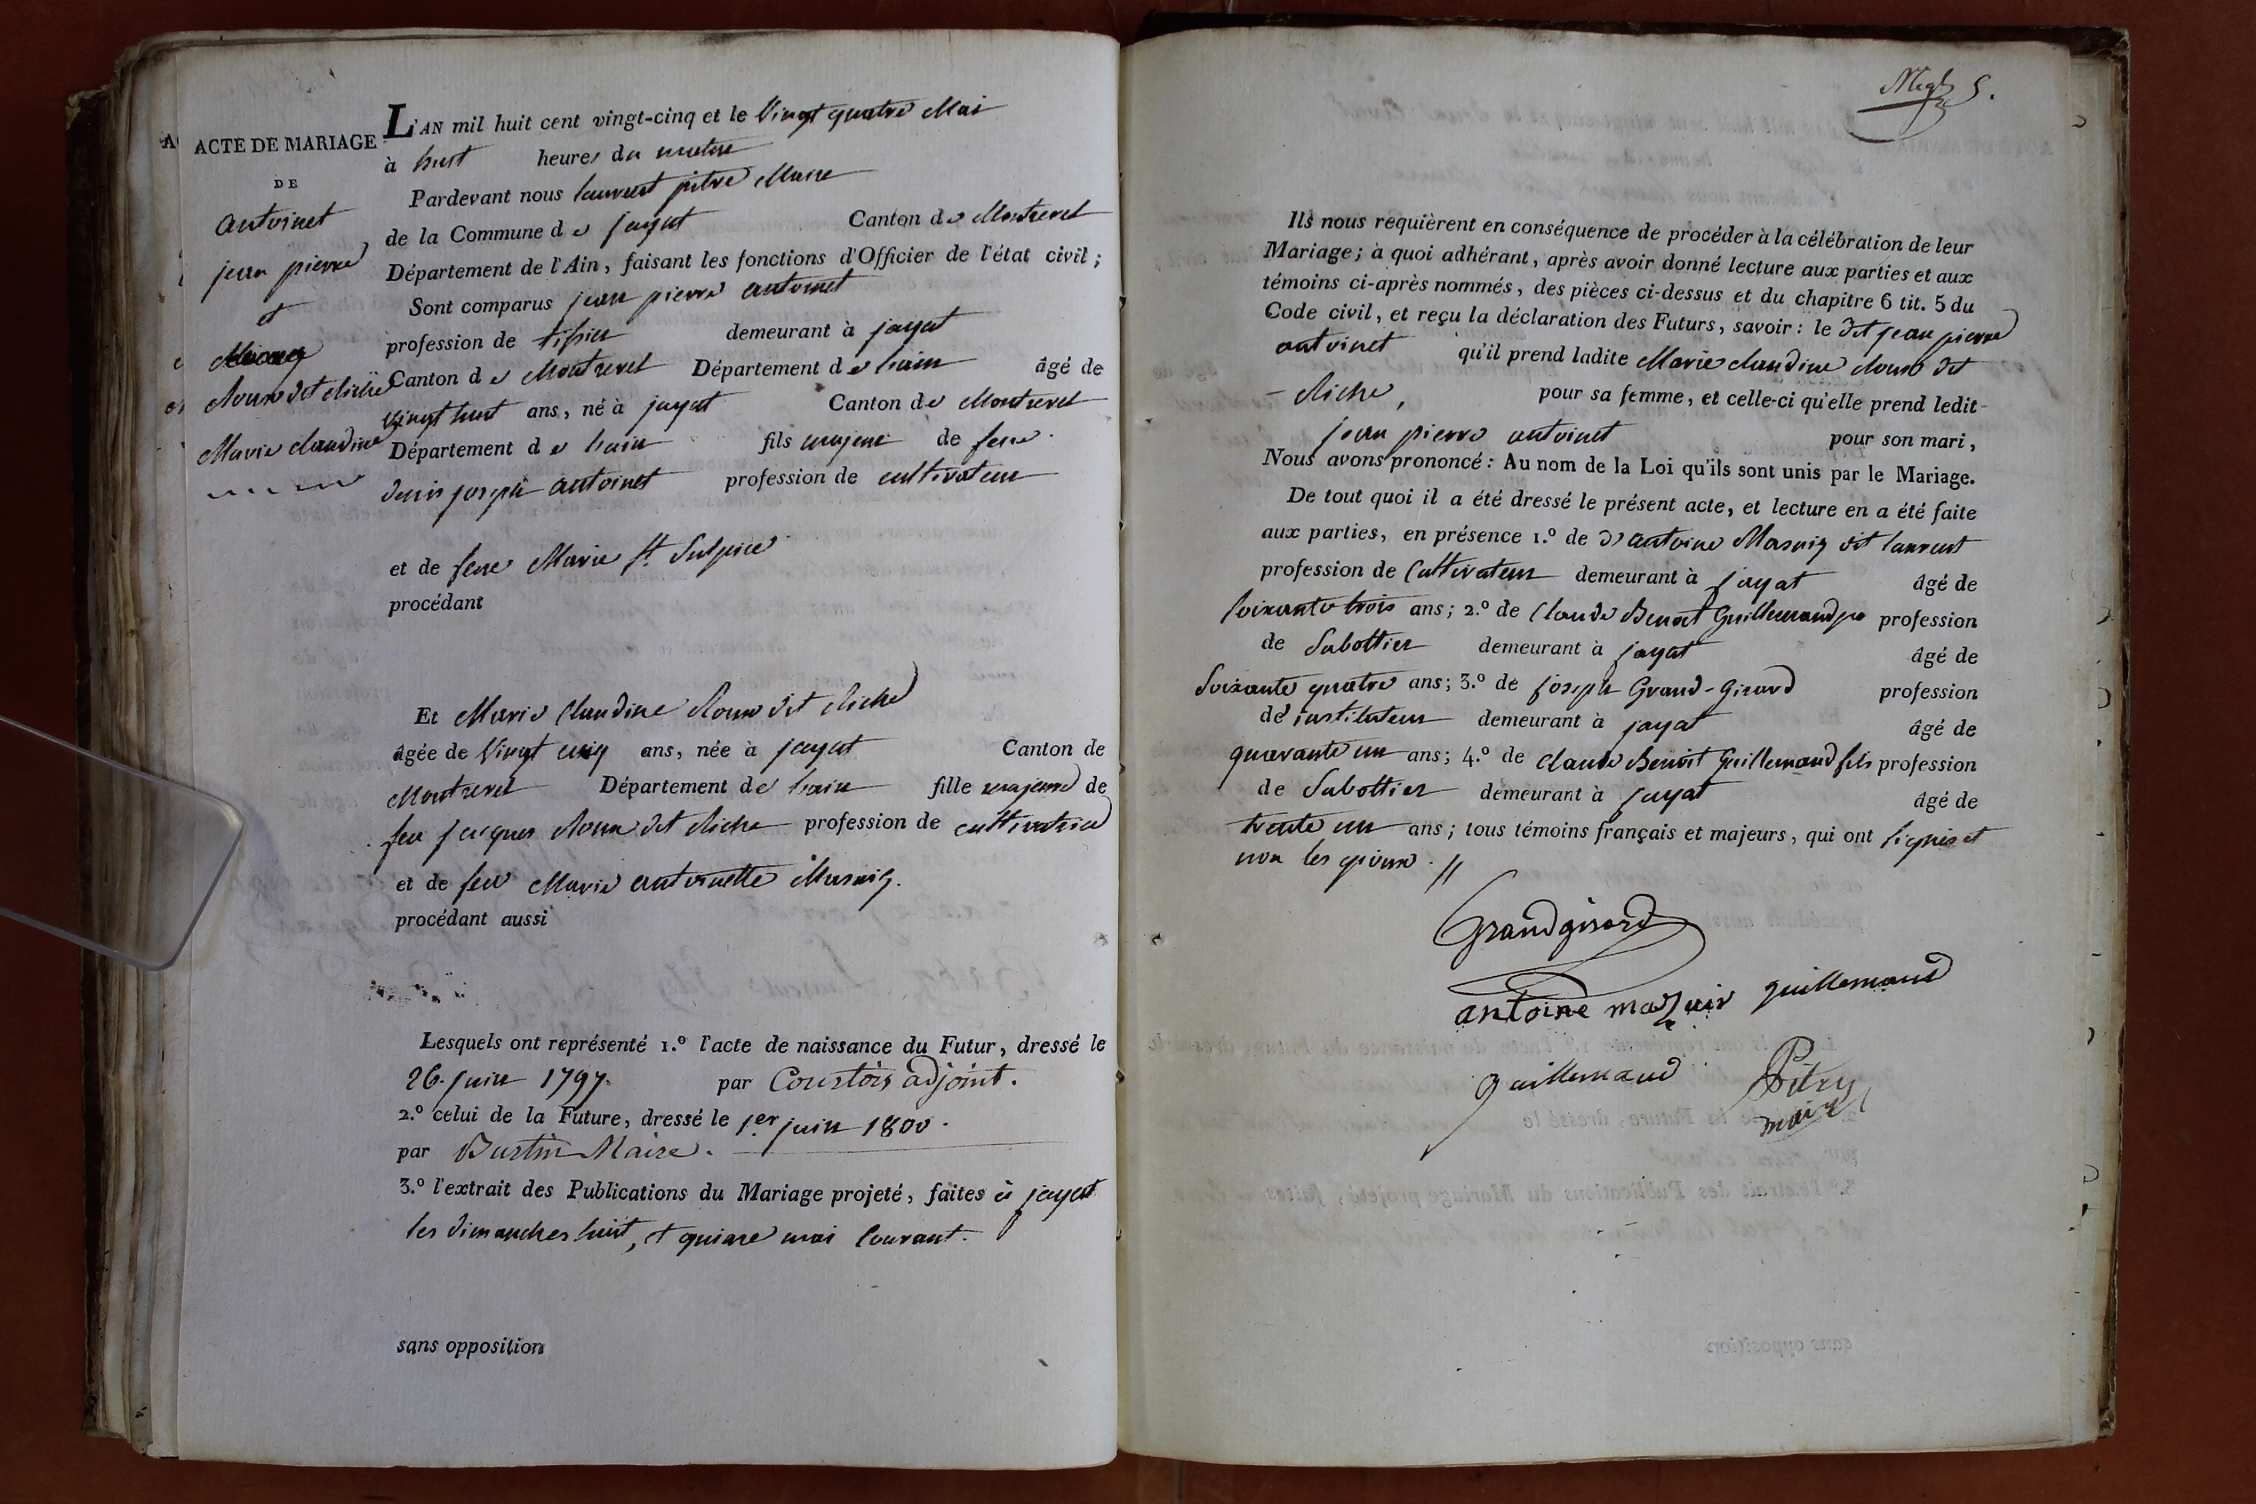 ACTE DE MARIAGE
DE
antoinet
jean pierre
et
doux dit cliche
Marie claudine
L'AN mil huit cent vingt-cinq et le vingt quatre Mai
à huit heures du matin
Pardevant nous laurent pitre Maire
de la Commune de jayat Canton de Montrevel
Département de l'Ain, faisant les fonctions d'Officier de l'état civil ;
Sont comparus jean pierre antoinet
profession de tissier demeurant à jayat
Canton de Montrevel Département de lain âgé de
vingt huit ans, né à jayat Canton de Montrevel
Département de lain fils majeur de feu
denis joseph antoinet profession de cultivateur
et de feue Marie St. Sulpice
procédant
Et Marie Claudine doux dit cliche
âgée de vingt cinq ans, née à jayat Canton de
Montrevel Département de lain fille majeure de
feu jacques doux dit cliche profession de cultivatrice
et de feu Marie antoinette Masuig.
procédant aussi
Lesquels ont représenté 1.º l'acte de naissance du Futur, dressé le
26. juin 1797. par Courtois adjoint.
2.º celui de la Future, dressé le 1er juin 1800.
par Burtin Maire.
3.º l'extrait des Publications du Mariage projeté, faites à jayat
les dimanches huit, et quinze mai courant.
sans opposition
5.
Ils nous requièrent en conséquence de procéder à la célébration de leur
Mariage ; à quoi adhérant, après avoir donné lecture aux parties et aux
témoins ci-après nommés, des pièces ci-dessus et du chapitre 6 tit. 5 du
Code civil, et reçu la déclaration des Futurs, savoir : le dit jean pierre
antoinet qu'il prend ladite Marie claudine doux dit
- cliche, pour sa femme, et celle-ci qu'elle prend ledit
jean pierre antoinet pour son mari,
Nous avons prononcé : Au nom de la Loi qu'ils sont unis par le Mariage.
De tout quoi il a été dressé le présent acte, et lecture en a été faite
aux parties, en présence 1.º de d'antoine Masuig dit laurent
profession de Cultivateur demeurant à jayat âgé de
soixante trois ans ; 2.º de Claude Benoit Guillemaud profession
de Sabottier demeurant à jayat âgé de
Soixante quatre ans ; 3.º de joseph Grand-Girard profession
de instituteur demeurant à jayat âgé de
quarante un ans ; 4.º de claude Benoit Guillemaud fils profession
de Sabottier demeurant à jayat âgé de
trente un ans ; tous témoins français et majeurs, qui ont signés et
non les époux. //
Grandgirard
antoine mazuir guillemaud
guillemaud Pitre
maire